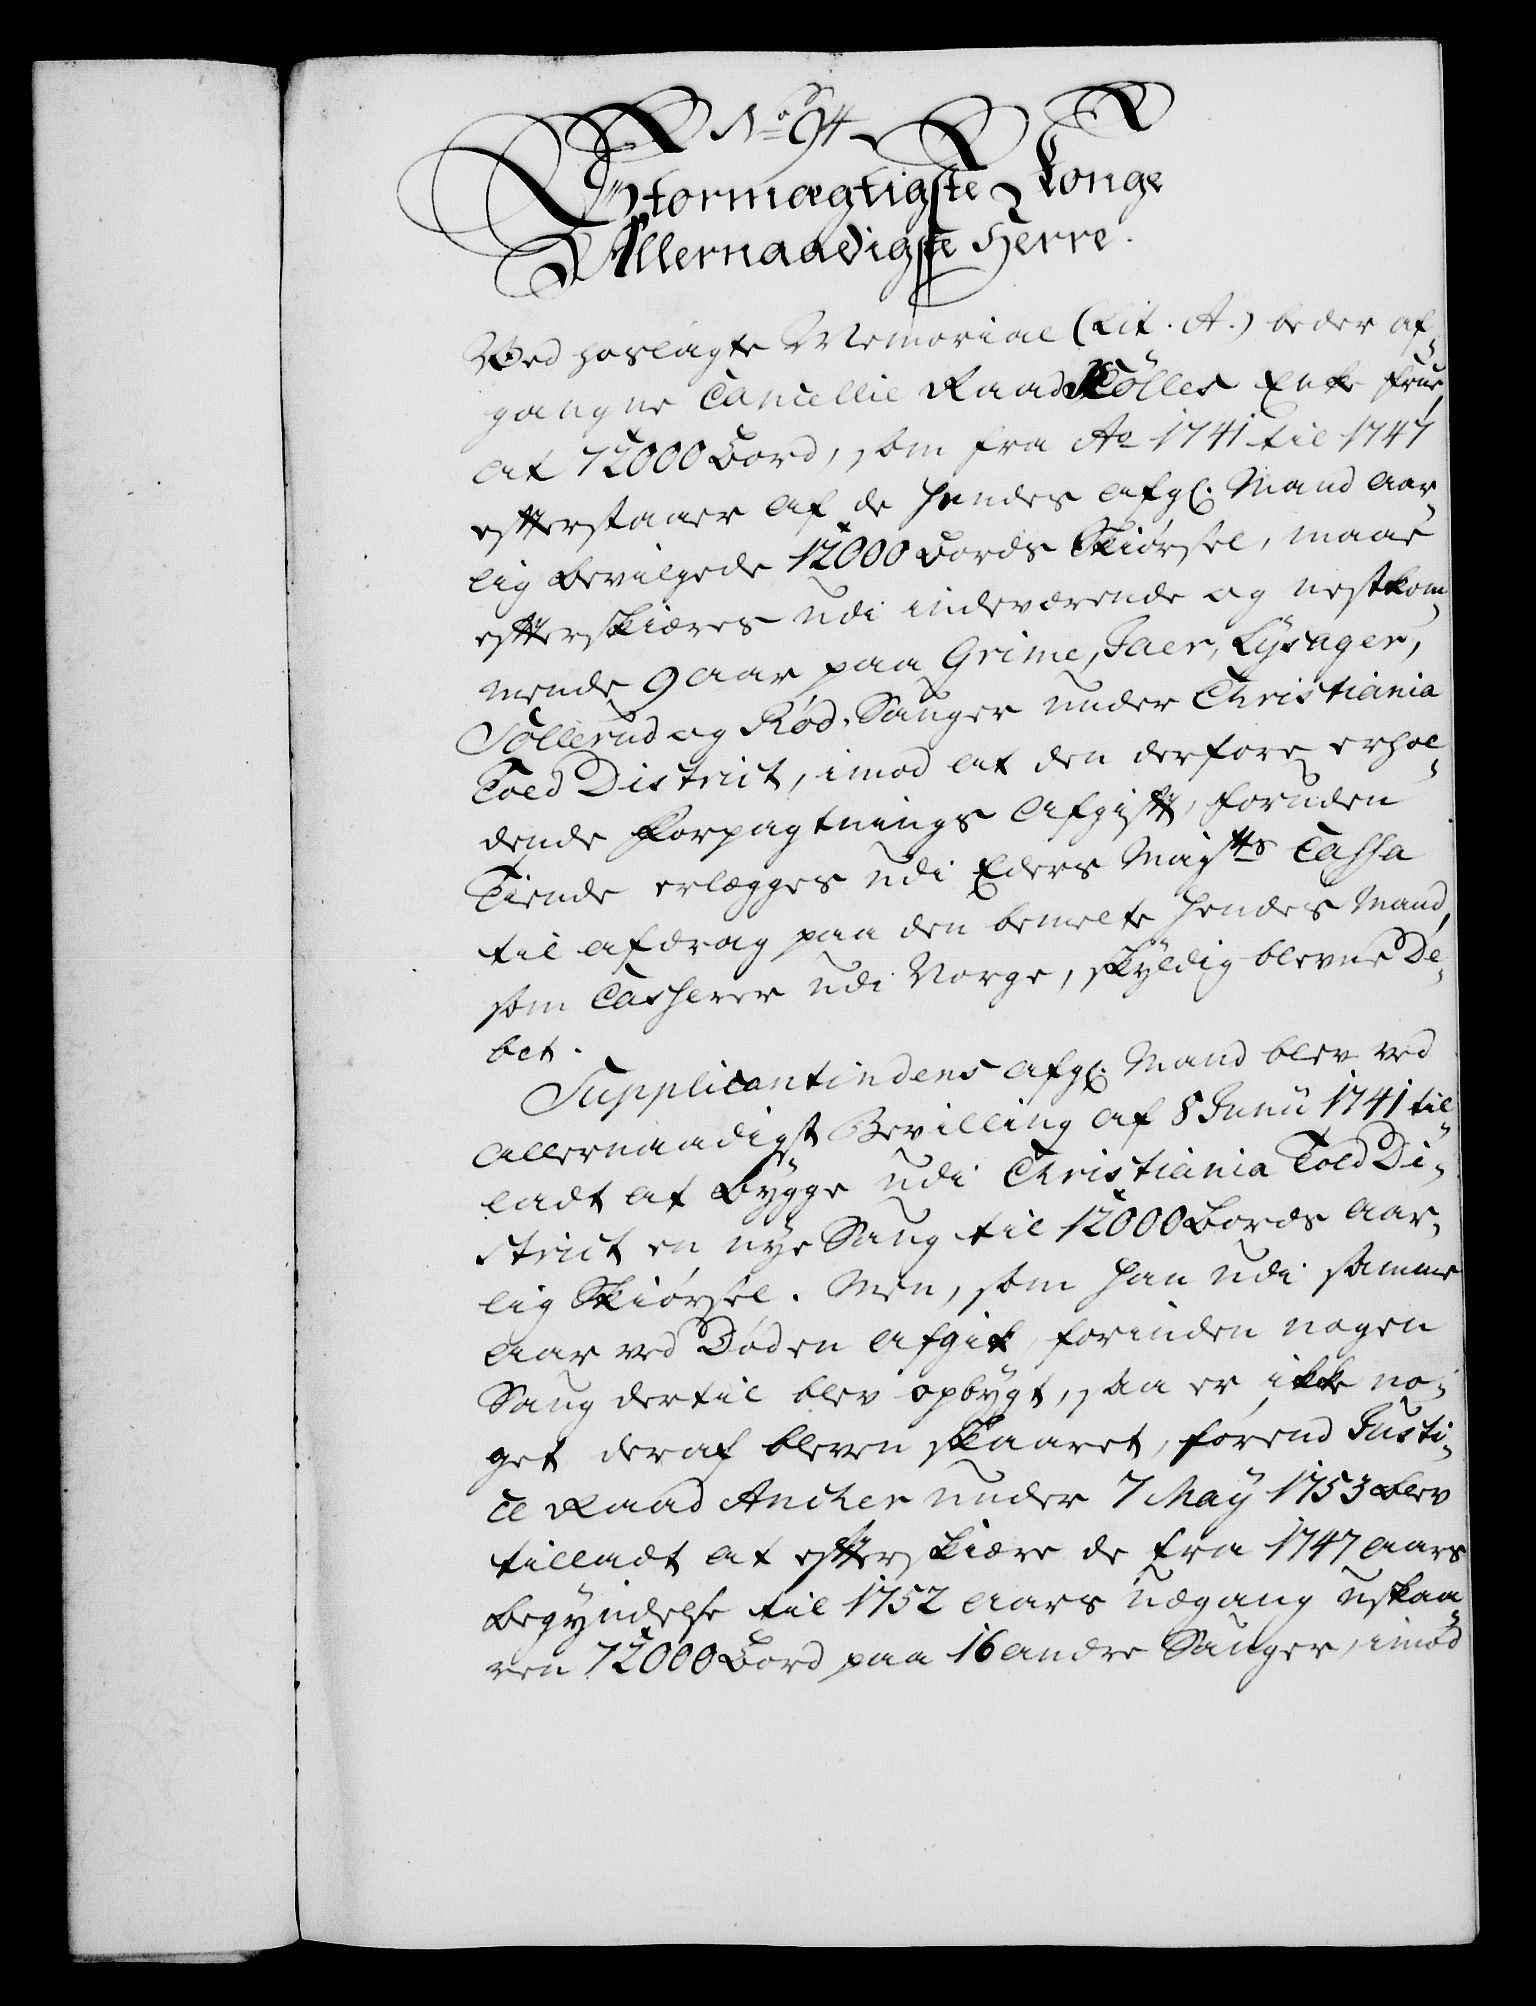 No 94
Stormægtigste Konge
Allernaadigste Herre.
Ved hoslagte Memorial (Lit. A.) beder af-
gangne Cancellie Raad Kölles Enke Frue,
at 72000 Bord, som fra Ao 1741 til 1747
efterstaaer af de hendes afgl. Mand aar-
lig bevilgede 12000 Bords Skiørsel, maae
efterskiæres udi indeværende og nestkom-
mende 9 aar paa Grime, Jaer, Lysager,
Söllerud og Rød-Sauger under Christiania
Told District, imod at den derfore erhol-
dende Forpagtnings Afgift, foruden
Tiende erlægges udi Eders Maytts Cassa
til afdrag paa den bemelte hendes Mand,
som Casserer udi Norge, skyldig blevne De-
bet.
Supplicantindens afgl. Mand blev ved
allernaadigst Bevilling af 8 Junii 1741 til-
ladt at bygge udi Christiania Told Di-
strict en nye Saug til 12000 Bords aar-
lig Skiørsel. Men, som han udi samme
aar ved Døden afgik, forinden nogen
Saug dertil blev opbygt, saa er ikke no-
get deraf bleven skaaret, førend Justi-
ce Raad Ancher under 7 May 1753 blev
tilladt at efterskiære de fra 1747 aars
begyndelse til 1752 aars udgang uskaa-
ren 72000 Bord paa 16 andre Sauger, imod